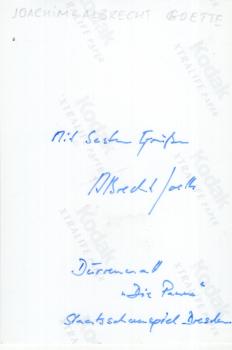 JOACHIM & ALBRECHT GOETTE
Mit besten Grüßen
Albrecht Goette
Dürrenmatt
„Die Panne“
Staatsschauspiel Dresden
Kodak
XTRALIFE PAPER